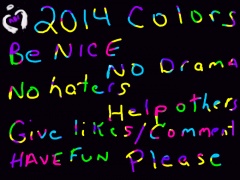 2014 Colors
Be NICE
No Drama
No haters
Help others
Give likes/Comment
HAVE FUN Please